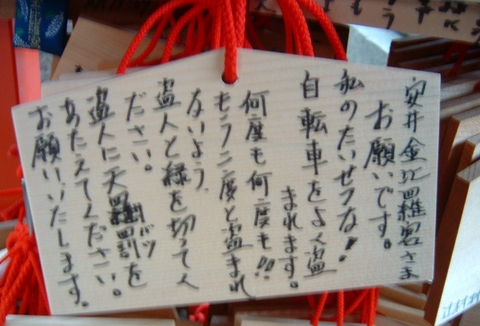 安井金比羅宮さま
お願いです。
私のたいせつな!
自転車をよく盗
まれます。
何度も何度も!!
もう二度と盗まれ
ないよう、
盗人と縁を切ってく
ださい。
盗人に天罰を
バツ
あたえてください。
お願いいたします。